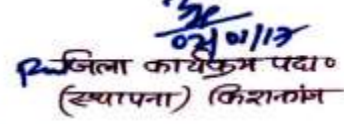 02/01/17
जिला कार्यक्रम पदा०
(स्थापना) किशनगंज